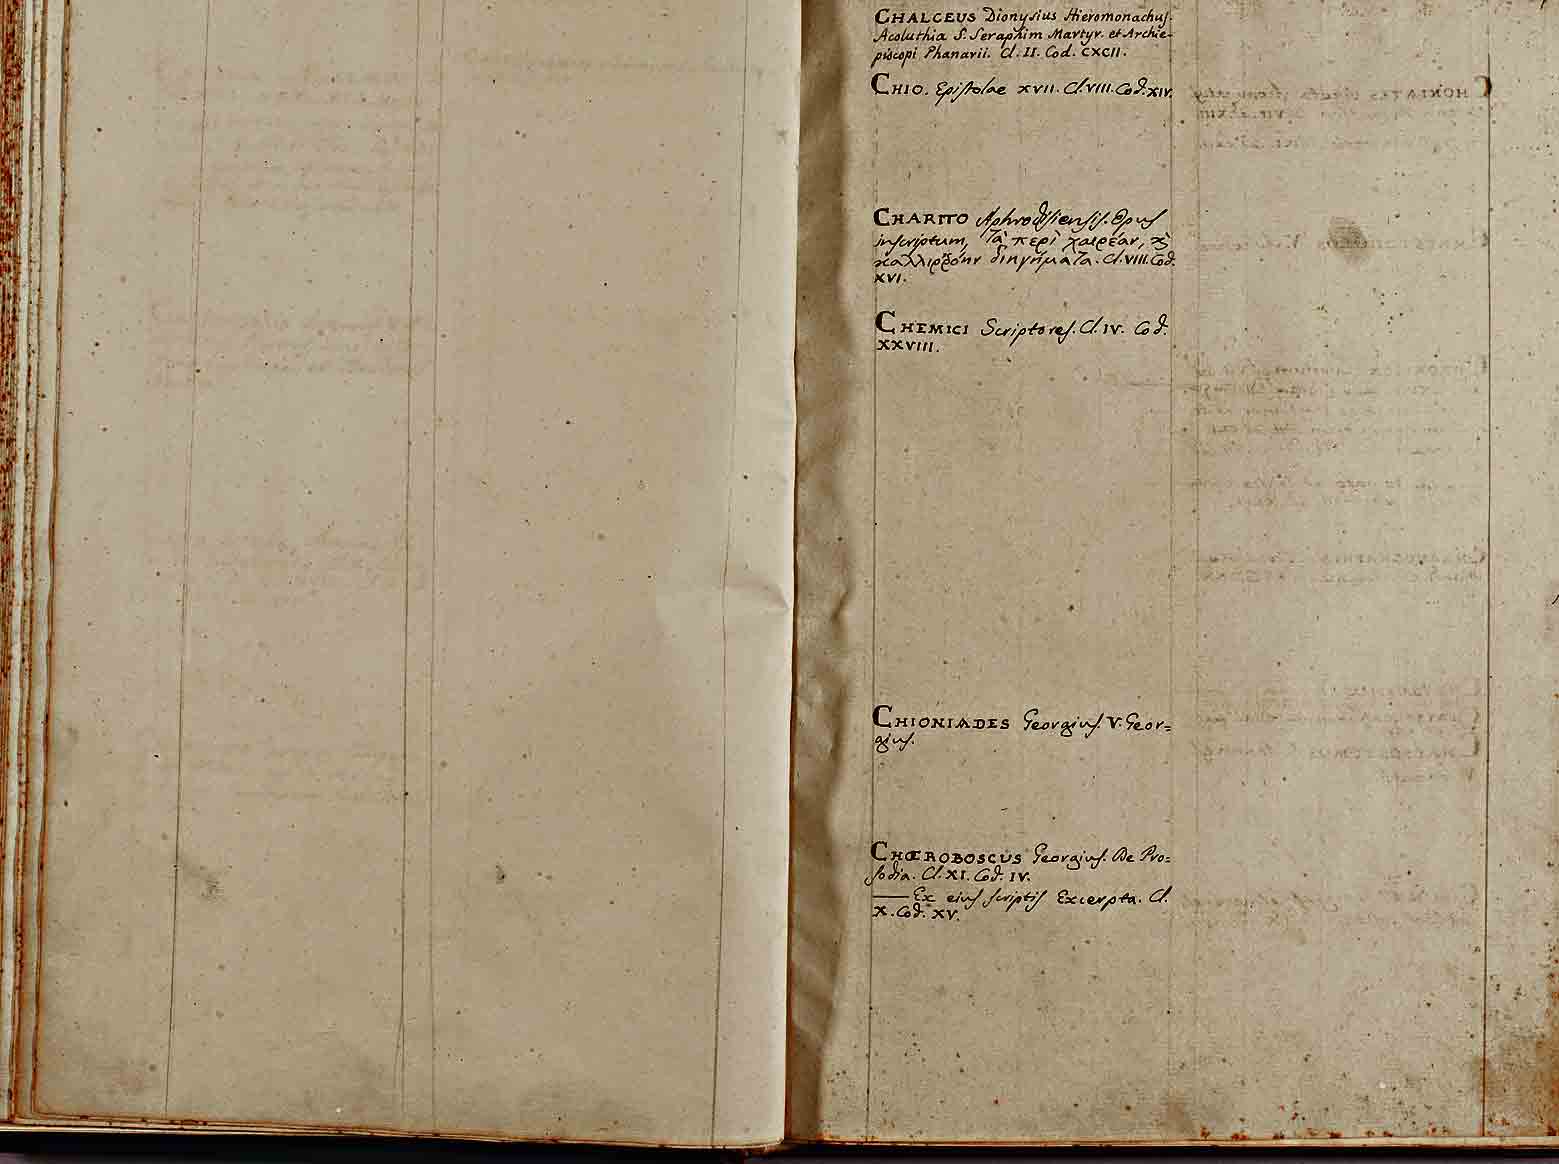 CHALCEUS Dionysius Hieromonachus.
Acoluthia S. Seraphim Martyr. et Archie-
piscopi Phanarii. Cl. II. Cod. CXCII.
CHIO. Epistolae XVII. Cl. VIII. Cod. XIV.
CHARITO Aphrodisiensis. Opus
inscriptum, Τὰ περὶ χαιρέαν, ϗ
καλλιῤῥόην διηγήματα. Cl. VIII. Cod.
XVI.
CHEMICI Scriptores. Cl. IV. Cod.
XXVIII.
CHIONIADES Georgius. V. Geor=
gius.
CHŒROBOSCUS Georgius. De Pro=
sodia. Cl. XI. Cod. IV.
—— Ex eius scriptis Excerpta. Cl.
X. Cod. XV.